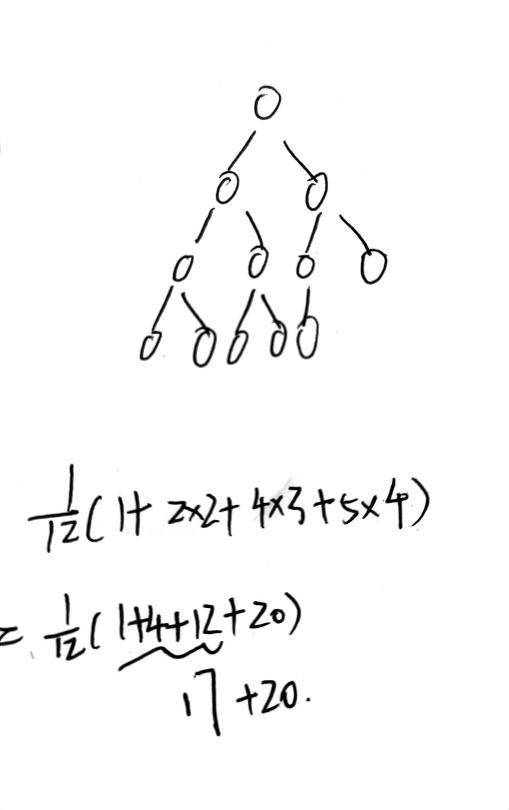 1/12(1+2×2+4×3+5×4)
=1/12(1+4+12+20)
17+20.